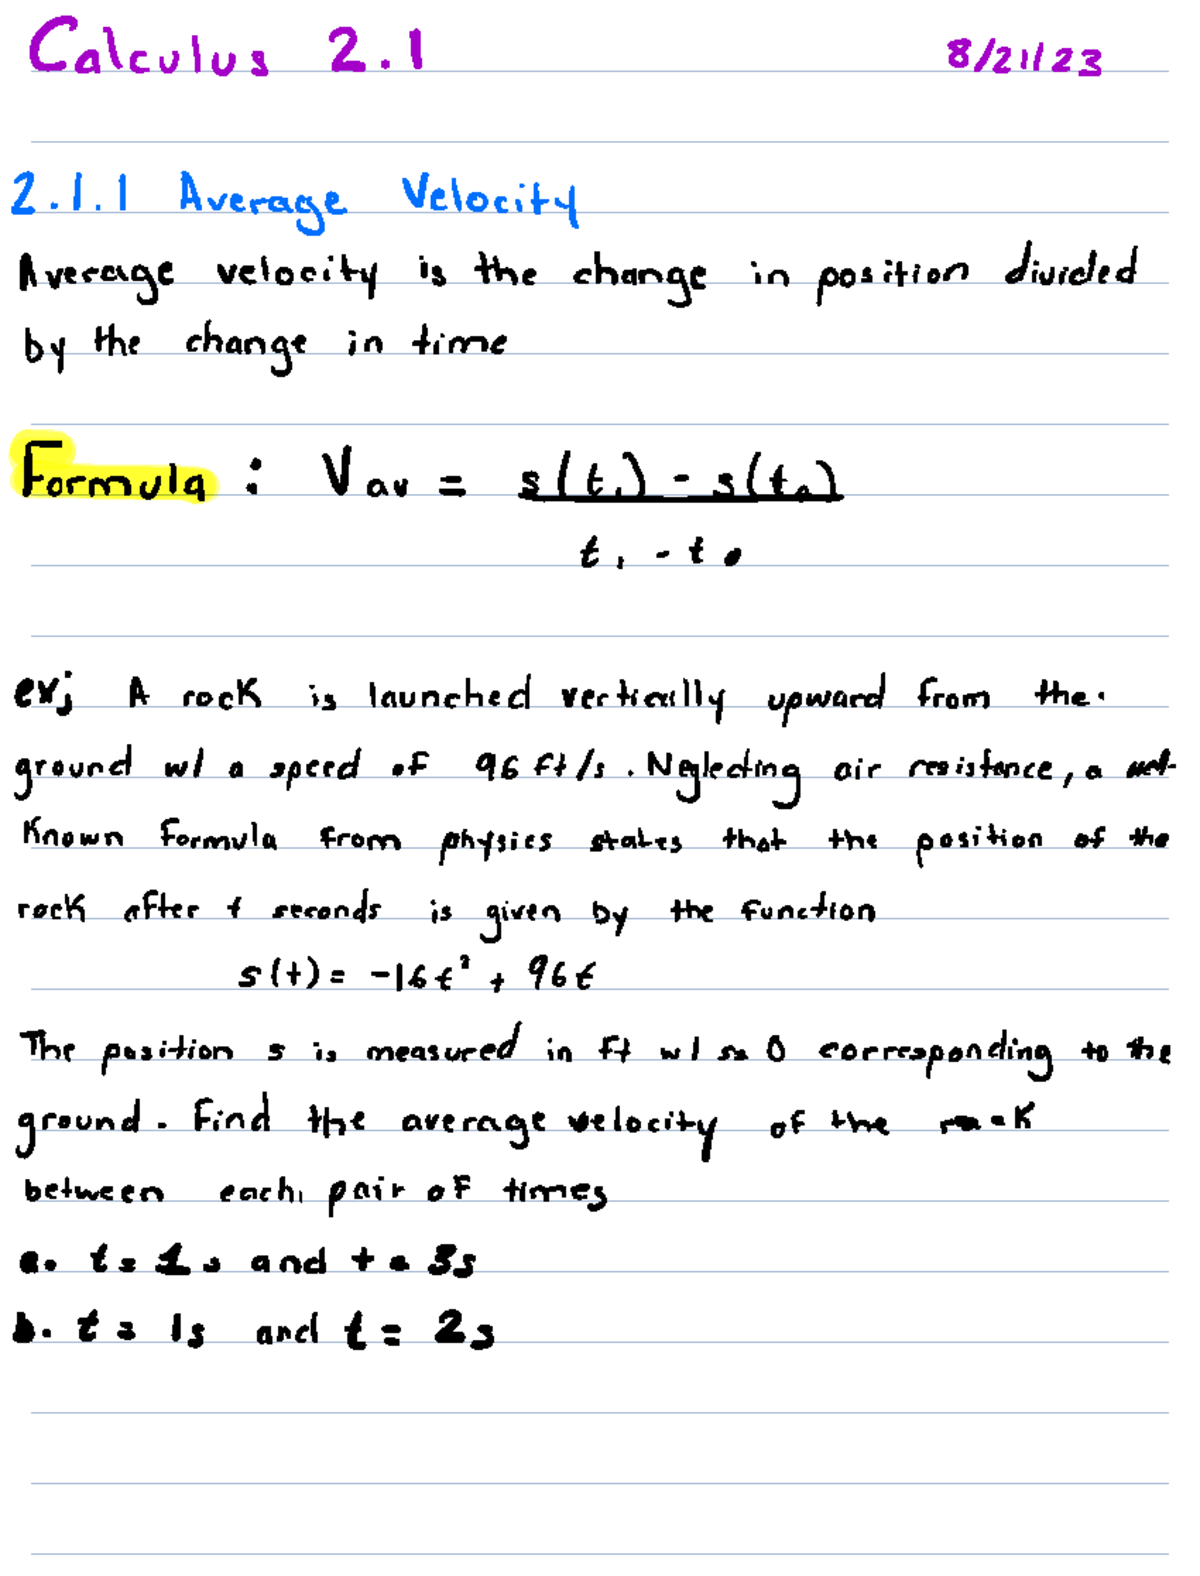 Calculus 2.1 8/21/23
2.1.1 Average Velocity
Average velocity is the change in position divided
by the change in time
Formula: Vav = s(t₁) - s(t₀)
t₁ - t₀
ex; A rock is launched vertically upward from the
ground w/ a speed of 96 ft/s. Neglecting air resistance, a well-
known formula from physics states that the position of the
rock after t seconds is given by the function
s(t) = -16t² + 96t
The position s is measured in ft w/ s= 0 corresponding to the
ground. Find the average velocity of the rock
between each pair of times
a. t= 1s and t= 3s
b. t= 1s and t= 2s